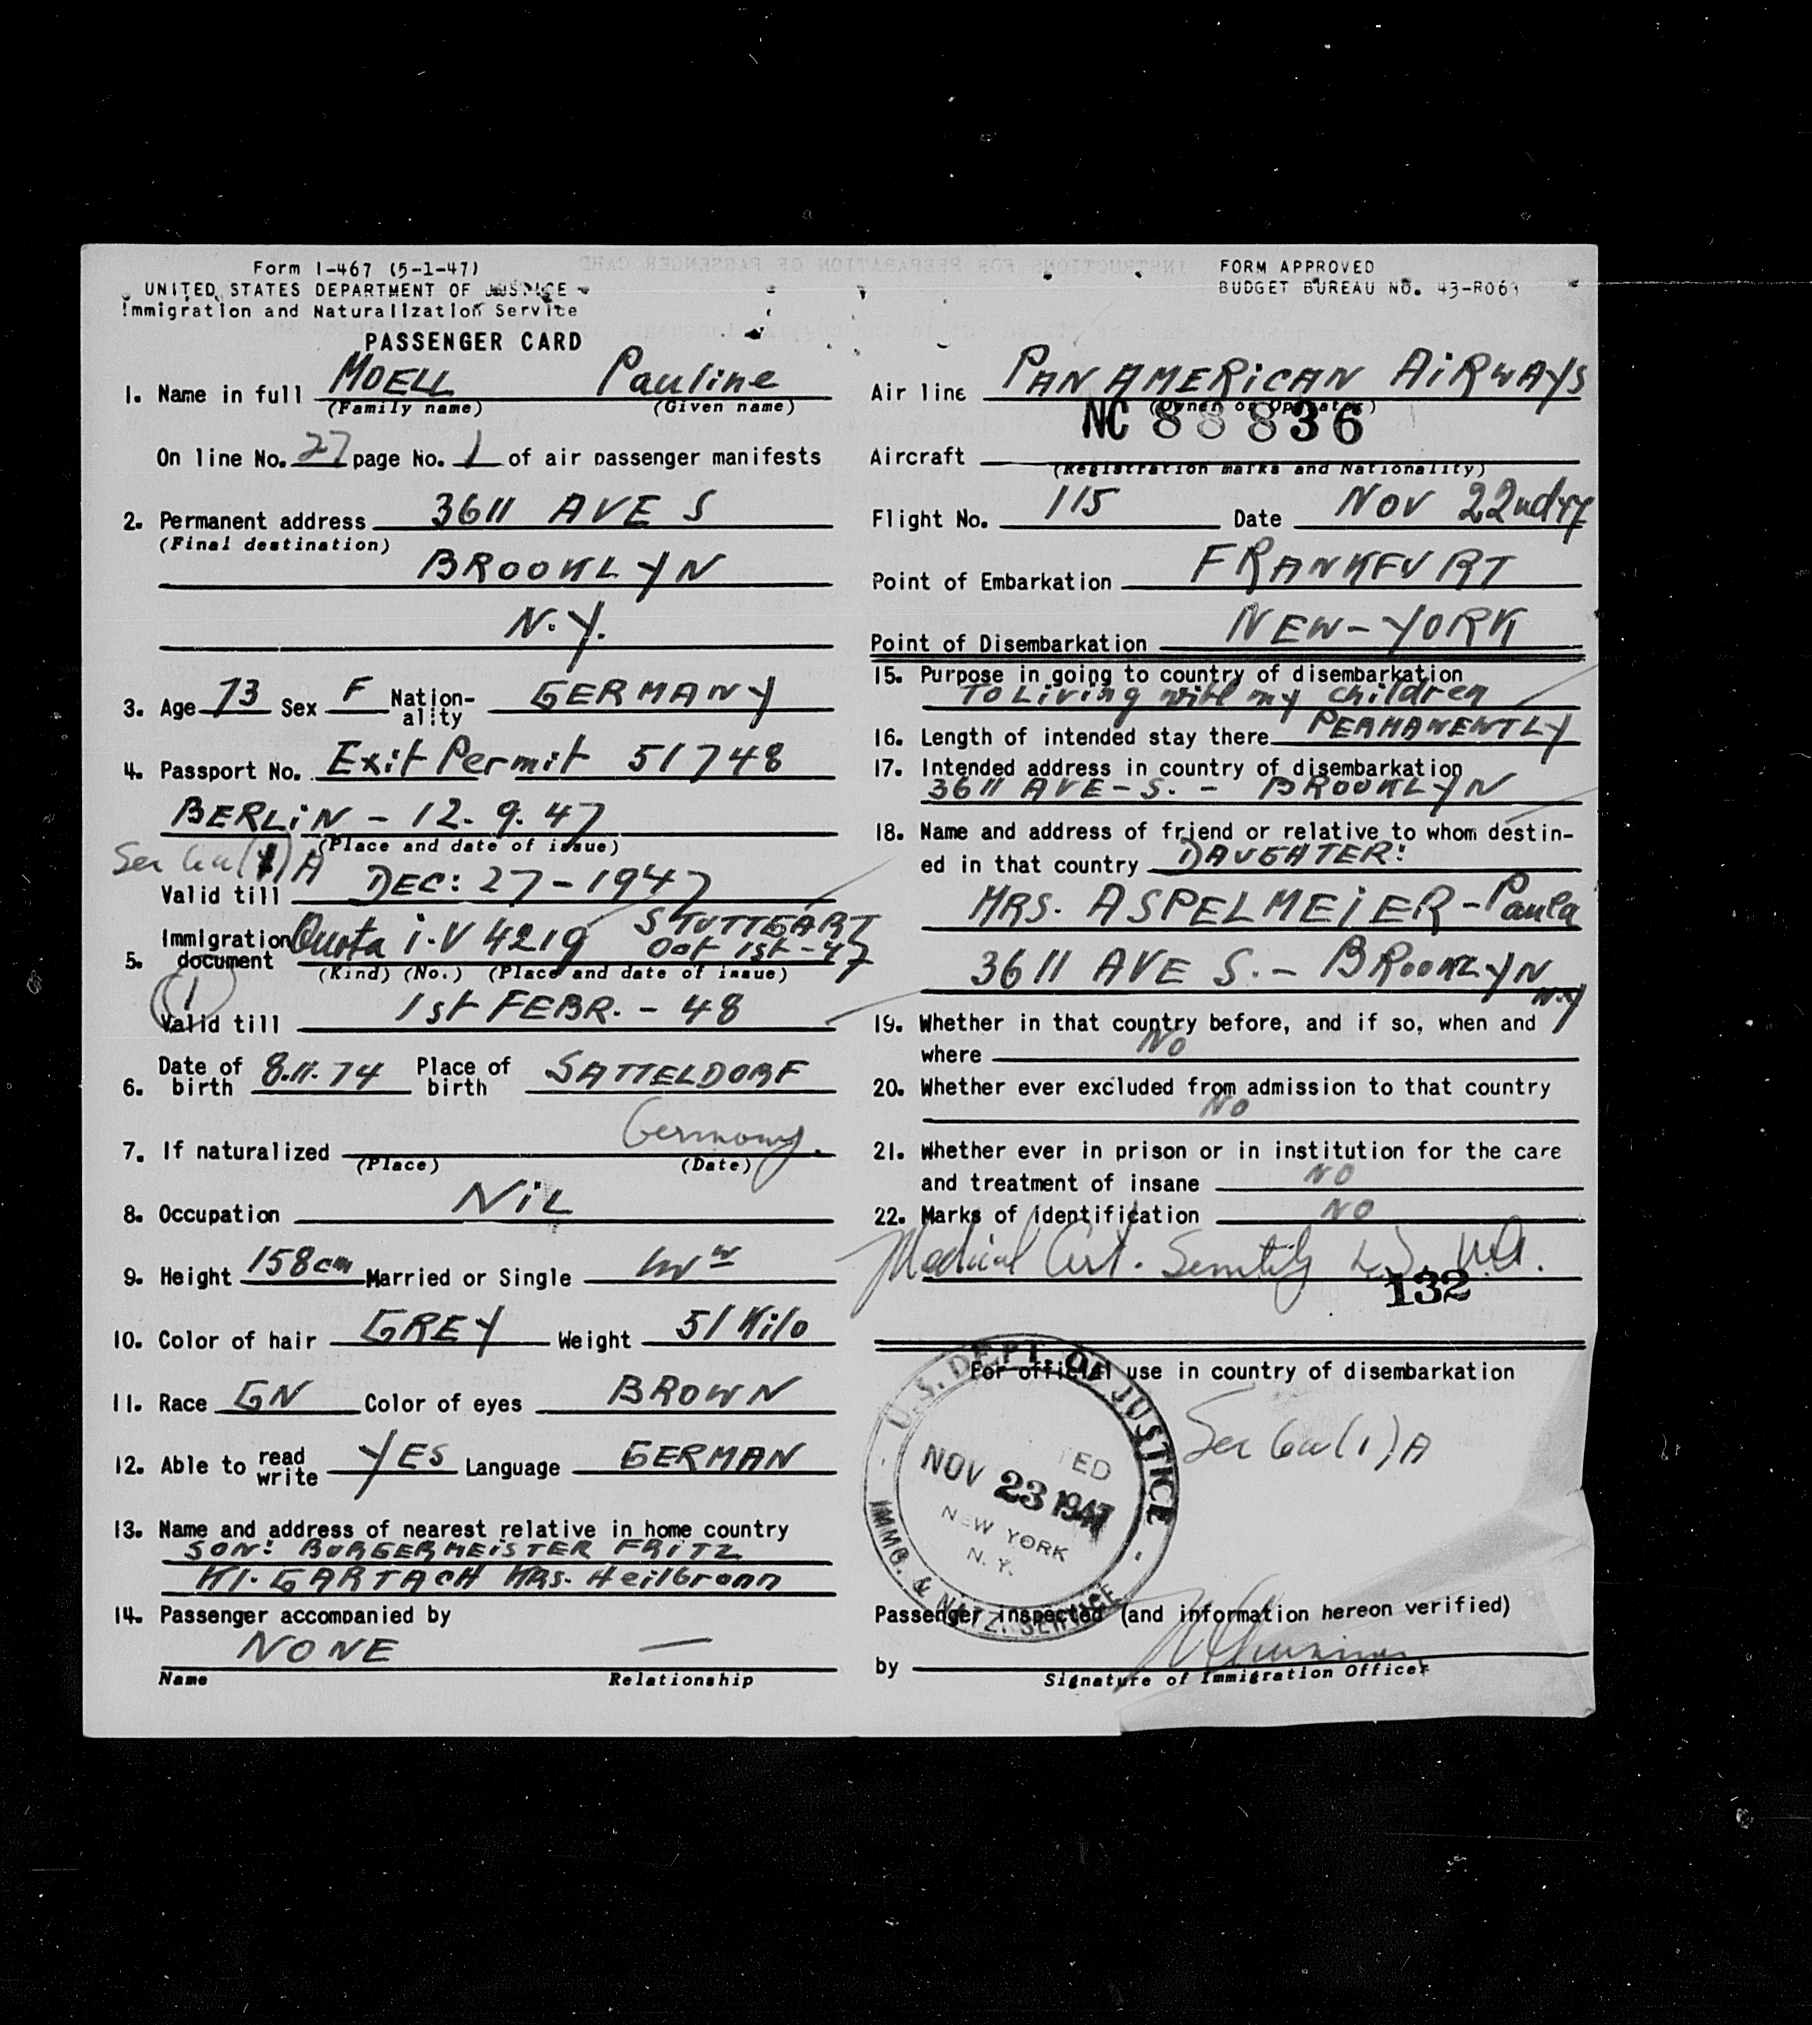 Form I-467 (5-1-47)
UNITED STATES DEPARTMENT OF JUSTICE
Immigration and Naturalization Service
PASSENGER CARD
FORM APPROVED
BUDGET BUREAU NO. 43-R063
1. Name in full MOELL Pauline
(Family name) (Given name)
On line No. 27 page No. 1 of air passenger manifests
2. Permanent address 3611 AVE S
(Final destination)
BROOKLYN
N.Y.
3. Age 73 Sex F Nation-ality GERMANY
4. Passport No. Exit Permit 51748
BERLIN - 12. 9. 47
(Place and date of issue)
Valid till DEC: 27-1947
5. Immigration document Quota i.V 4219 STUTTGART
Oct 1st-47
(Kind) (No.) (Place and date of issue)
(1)
Valid till 1st FEBR. - 48
6. Date of birth 8.11.74 Place of birth SATTELDORF
Germany.
7. If naturalized
(Place) (Date)
8. Occupation NiL
9. Height 158cm Married or Single
10. Color of hair GREY Weight 51 Kilo
11. Race GN Color of eyes BROWN
12. Able to read write YES Language GERMAN
13. Name and address of nearest relative in home country
SON: BURGERMEISTER FRITZ
Kl. GARTACH KRS. Heilbronn
14. Passenger accompanied by
NONE —
Name Relationship
Air line PAN AMERiCAN AiRWAYS
(Owner or Operator)
NC 88836
Aircraft
(Registration marks and Nationality)
Flight No. 115 Date NOV 22nd 47
Point of Embarkation FRANKFURT
Point of Disembarkation NEW-YORK
15. Purpose in going to country of disembarkation
To Living with my children
16. Length of intended stay there PERMANENTLY
17. Intended address in country of disembarkation
3611 AVE-S. - BROOKLYN
18. Name and address of friend or relative to whom destin-
ed in that country DAUGHTER:
MRS. ASPELMEiER-Paula
3611 AVE S. - BROOKLYN
N.Y
19. Whether in that country before, and if so, when and
where NO
20. Whether ever excluded from admission to that country
NO
21. Whether ever in prison or in institution for the care
and treatment of insane NO
22. Marks of identification NO
Medical Cert. Senility
132
For official use in country of disembarkation
U.S. DEPT. OF JUSTICE
NOV 23 1947
NEW YORK
N. Y.
IMMG. & NATZ. SERVICE
Passenger inspected (and information hereon verified)
by
Signature of Immigration Officer